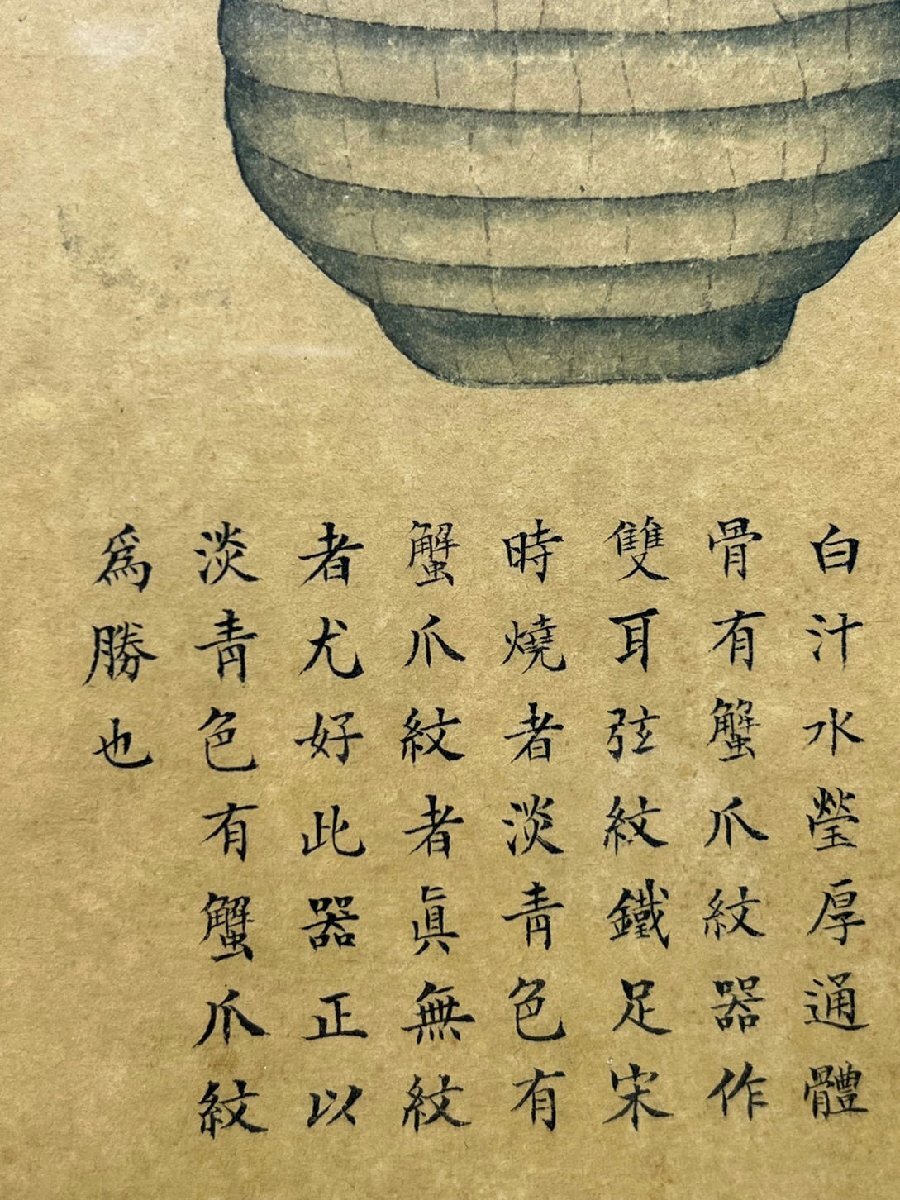 白汁水瑩厚通體
骨有蟹爪紋器作
雙耳弦紋鐵足宋
時燒者淡青色有
蟹爪紋者眞無紋
者尤好此器正以
淡青色有蟹爪紋
爲勝也